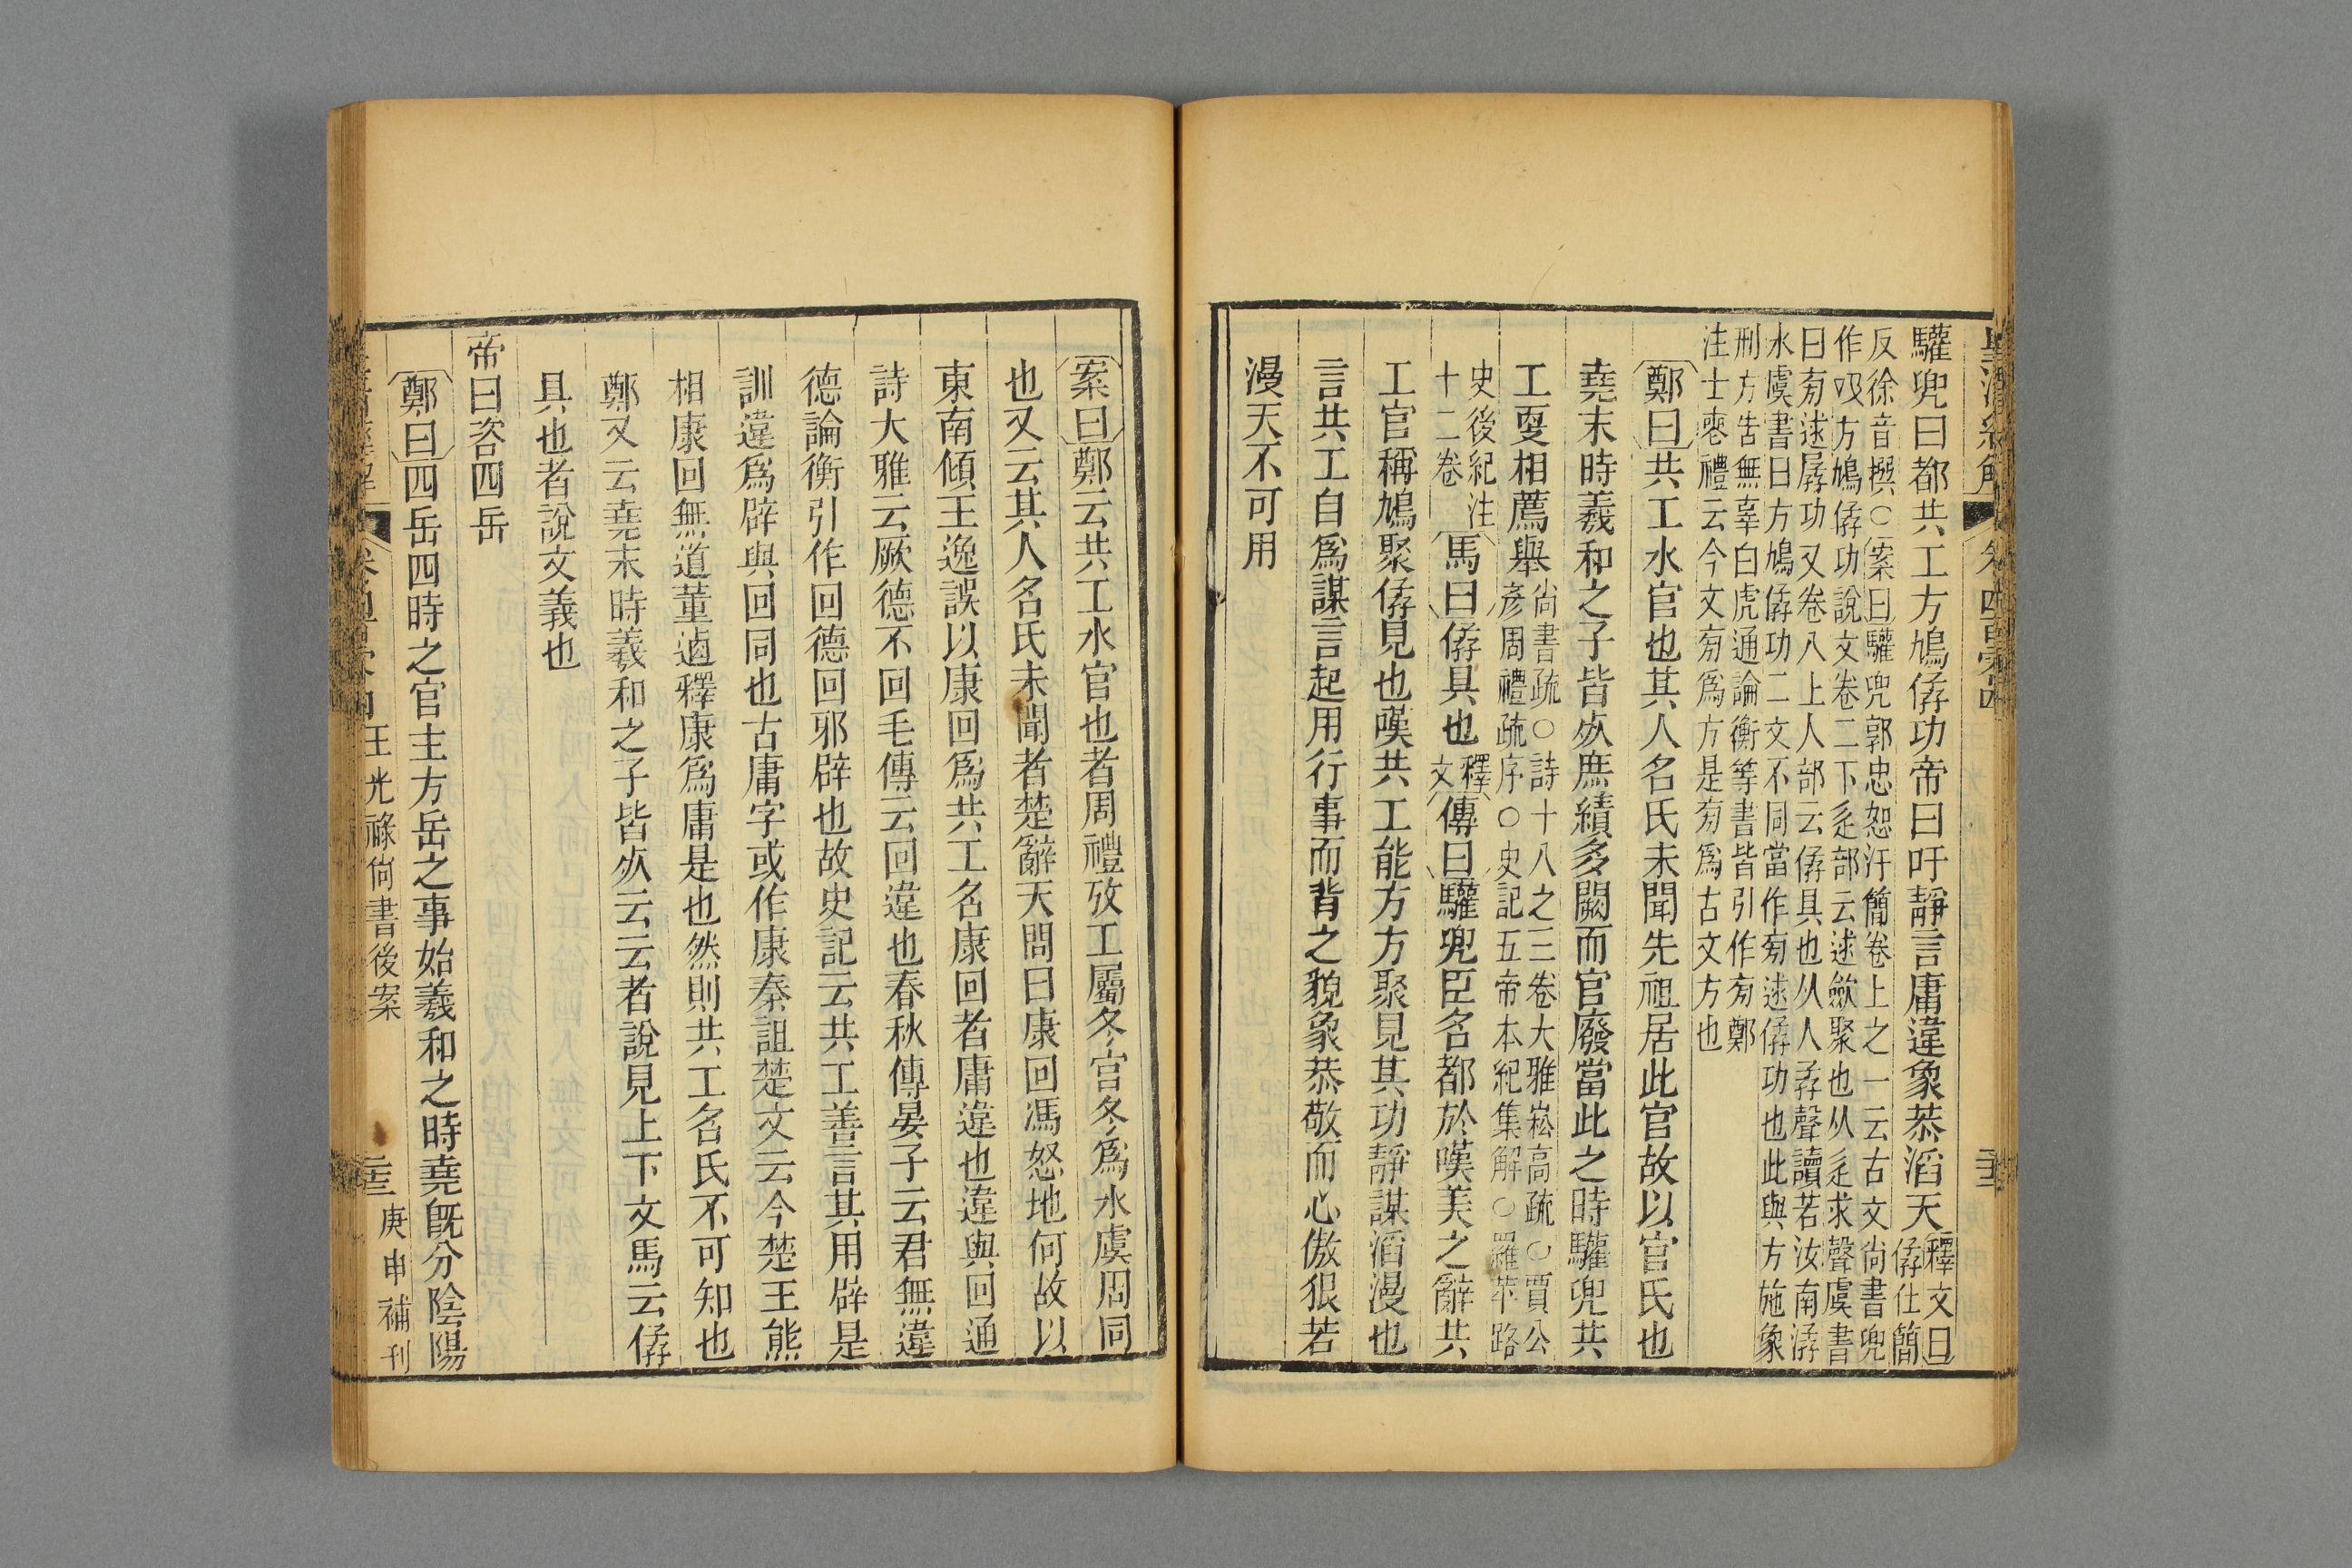 驩兜曰都共工方鳩僝功帝曰吁靜言庸違象恭滔天釋文曰僝仕簡
反徐音撰○案曰驩兜郭忠恕汗簡卷上之一云古文尚書兜
作吺方鳩僝功說文卷二下辵部云逑斂聚也从辵求聲虞書
曰㫄逑孱功又卷八上人部云僝具也从人孨聲讀若汝南潺
水虞書曰方鳩僝功二文不同當作㫄逑僝功也此與方施象
刑方告無辜白虎通論衡等書皆引作㫄鄭
注士喪禮云今文㫄爲方是㫄爲古文方也
鄭曰共工水官也其人名氏未聞先祖居此官故以官氏也
堯末時羲和之子皆死庶績多闕而官廢當此之時驩兜共
工更相薦舉尚書疏○詩十八之三卷大雅崧高疏○賈公彥周禮疏序○史記五帝本紀集解○羅苹路
史後紀注十二卷馬曰僝具也釋文傳曰驩兜臣名都於嘆美之辭共
工官稱鳩聚僝見也嘆共工能方方聚見其功靜謀滔漫也
言共工自爲謀言起用行事而背之貌象恭敬而心傲狠若
漫天不可用
案曰鄭云共工水官也者周禮攷工屬冬官冬爲水虞周同
也又云其人名氏未聞者楚辭天問曰康回馮怒地何故以
東南傾王逸誤以康回爲共工名康回者庸違也違與回通
詩大雅云厥德不回毛傳云回違也春秋傳晏子云君無違
德論衡引作回德回邪辟也故史記云共工善言其用辟是
訓違爲辟與回同也古庸字或作康秦詛楚文云今楚王熊
相康回無道董逌釋康爲庸是也然則共工名氏不可知也
鄭又云堯末時羲和之子皆死云云者說見上下文馬云僝
具也者說文義也
帝曰咨四岳
鄭曰四岳四時之官主方岳之事始羲和之時堯旣分陰陽
王光祿尚書後案 庚申補刊